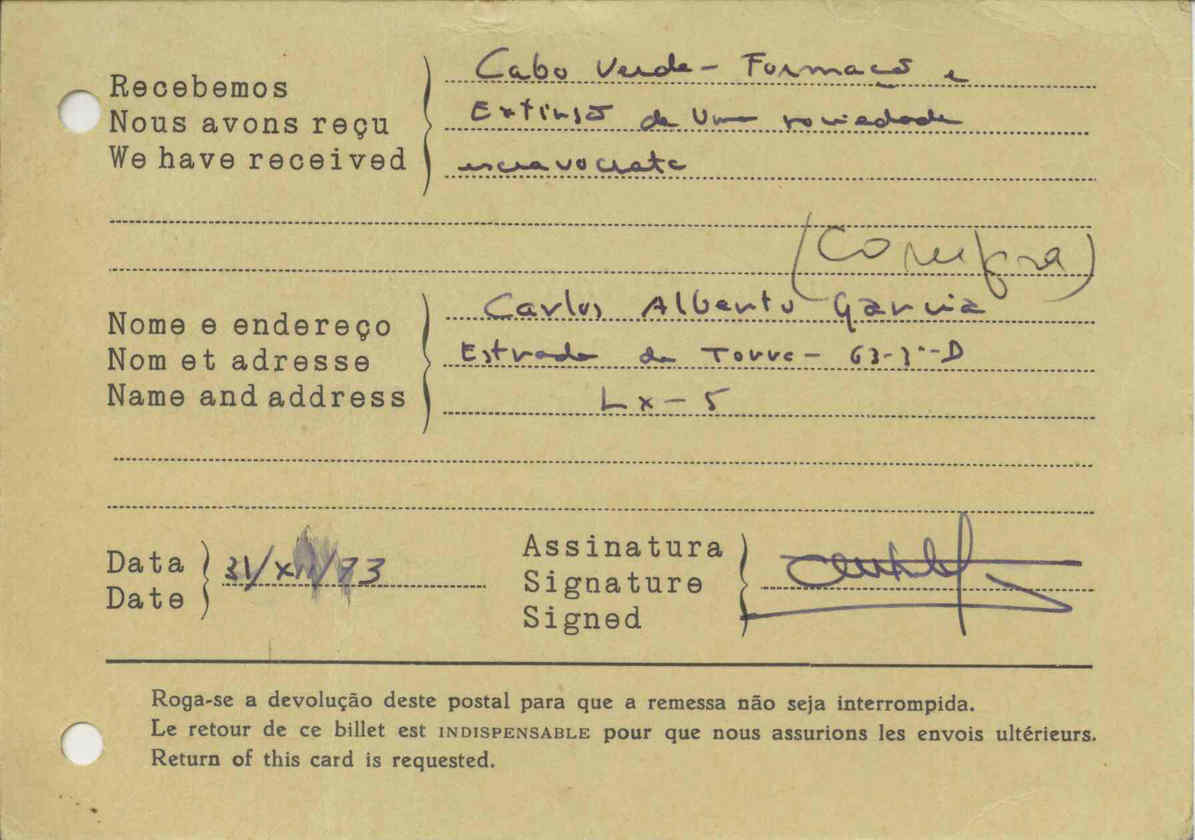 Recebemos
Nous avons reçu
We have received
Cabo Verde - Formaçõ e
Extinsõ de Uma sociedade
escravocrata
(Compra)
Nome e endereço
Nom et adresse
Name and address
Carlos Alberto Garcia
Estrada da Torre - 63-3º-D
Lx - 5
Data
Date
31/X/73
Assinatura
Signature
Signed
Roga-se a devolução deste postal para que a remessa não seja interrompida.
Le retour de ce billet est INDISPENSABLE pour que nous assurions les envois ultérieurs.
Return of this card is requested.